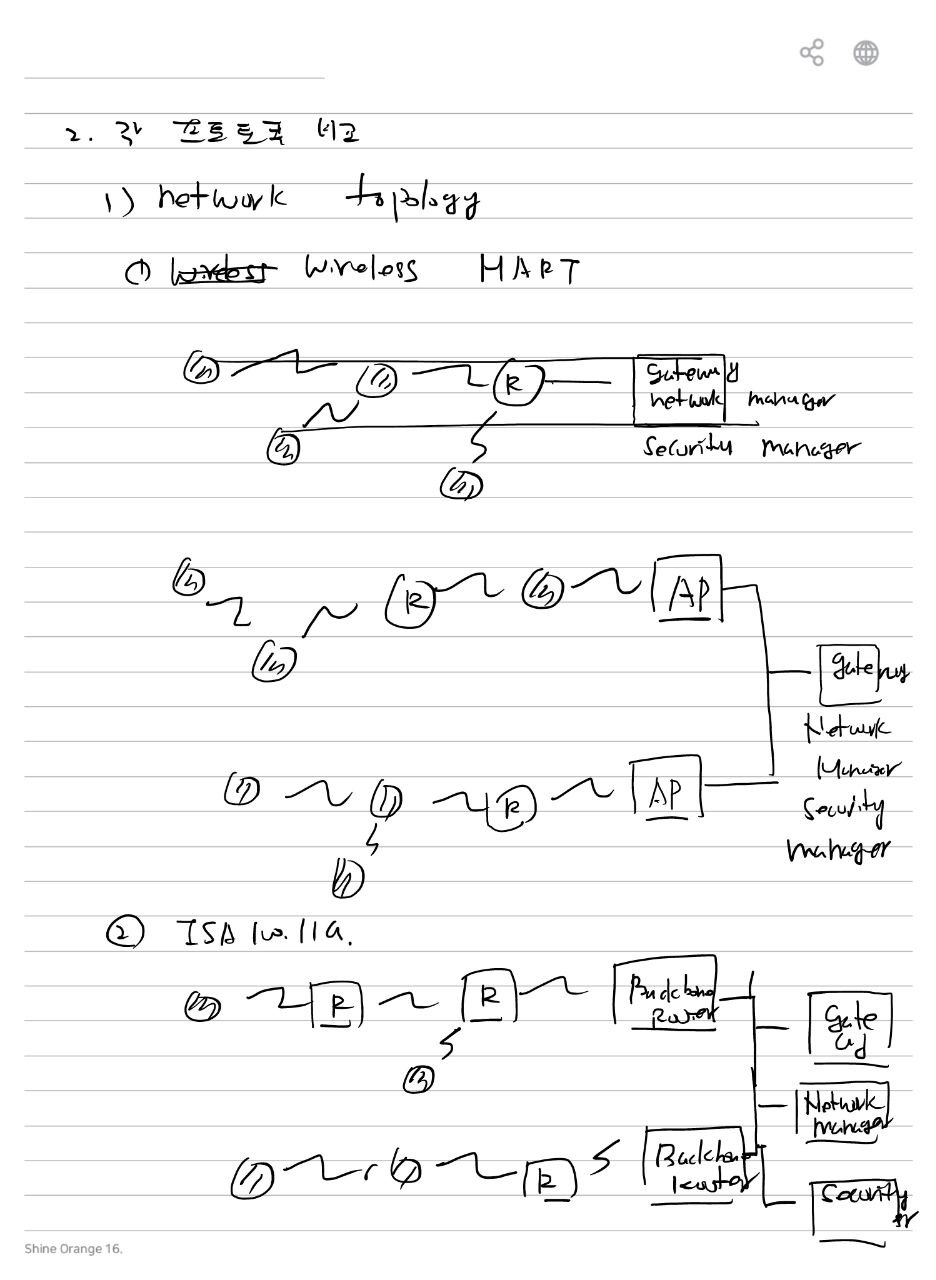 2. 각 프로토콜 비교
1) network topology
① wireless HART
R
gateway
network manager
security manager
R
AP
gateway
Network
Manager
security
manager
R
AP
② ISA 100.11a.
R
R
Backbone
Router
Gate
Network
manager
R
Backbone
router
Security